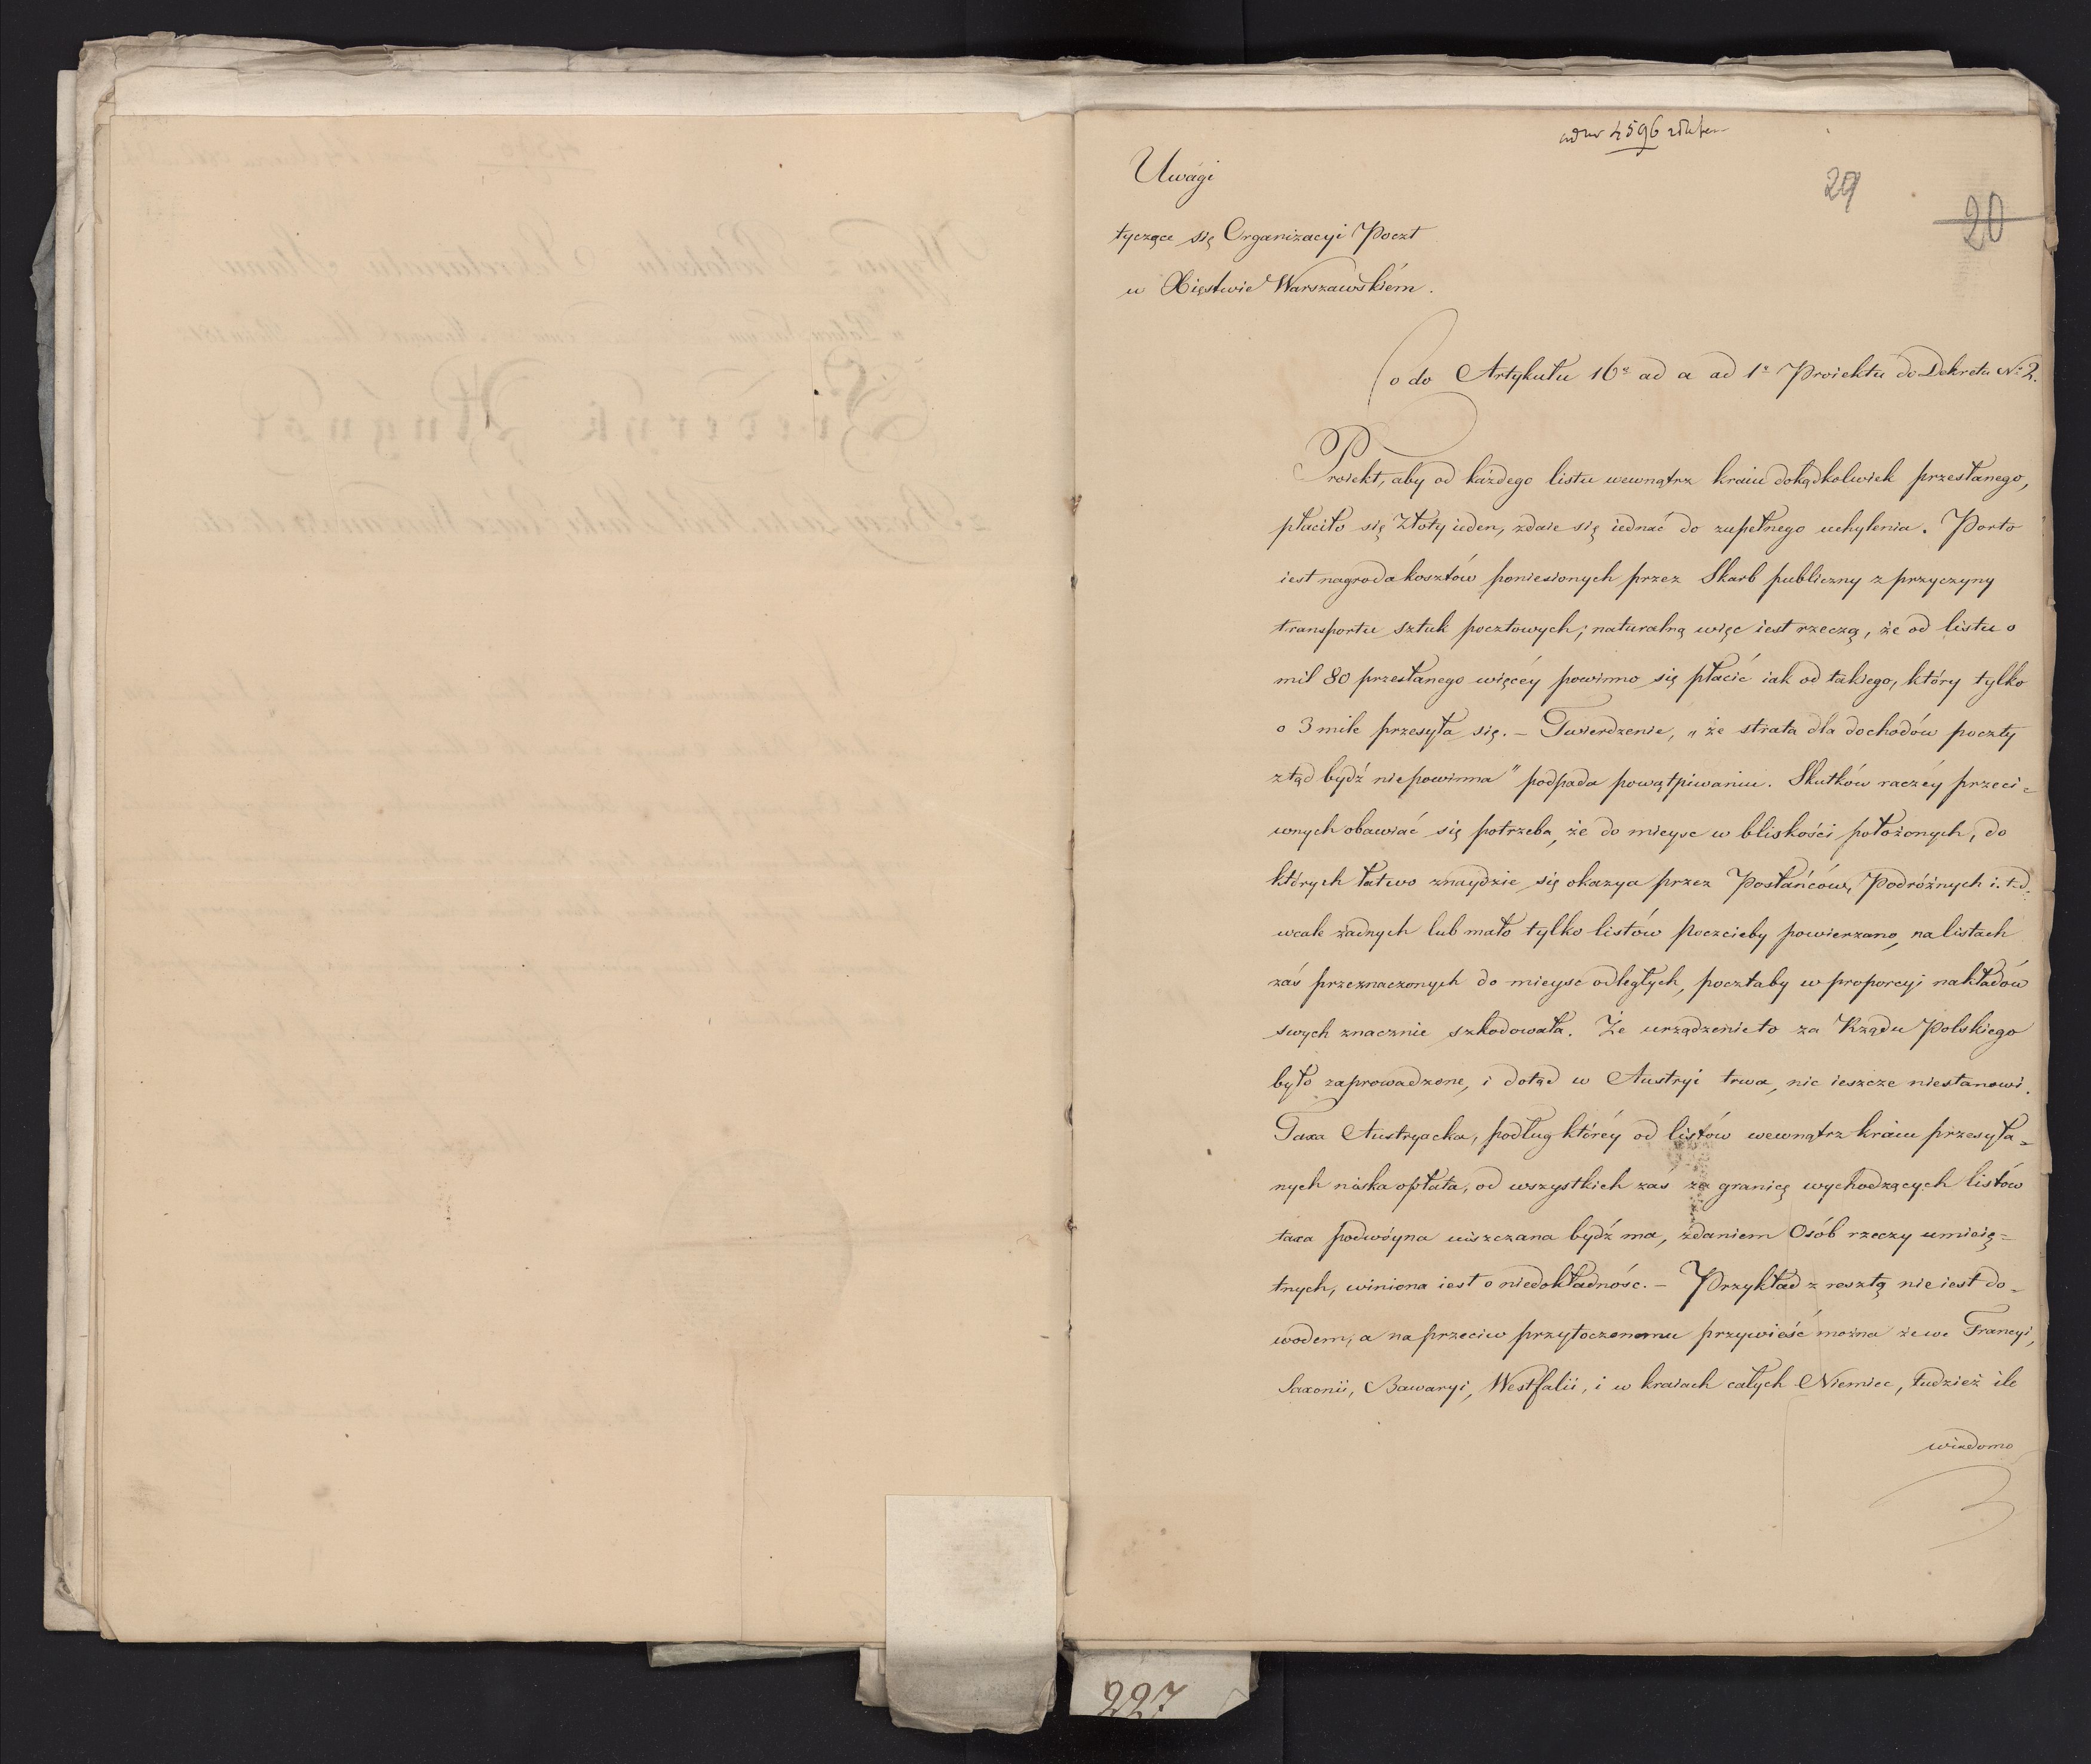 ad nr 4596
29
20
Uwagi
tyczące się Organizacyi Poczt
w Xięstwie Warszawskiém.
Co do Artykułu 16º ad a ad 1º Proiektu do Dekretu Nº 2.
Proiekt, aby od każdego listu wewnątrz kraiu dokądkolwiek przesłanego,
płaciło się Złoty ieden, zdaie się iednać do zupełnego uchylenia. Porto
iest nagroda kosztów poniesionych przez Skarb publiczny z przyczyny
transportu sztuk pocztowych; naturalną więc iest rzeczą, że od listu o
mil 80 przesłanego więcéy powinno się płacić iak od takiego, który tylko
o 3 mile przesyła się. – Twierdzenie, „że strata dla dochodów poczty
ztąd bydź niepowinna" podpada powątpiwaniu. Skutków raczéy przeci=
wnych obawiać się potrzeba, że do mieysc w bliskości położonych, do
których łatwo znaydzie się okazya przez Posłańców, Podróżnych i. t. d.
wcale żadnych lub mało tylko listów Poczcieby powierzano, na listach
zaś przeznaczonych do mieysc odległych, pocztaby w proporcyi nakładów
swych znacznie szkodowała. Że urządzenie to za Rządu Polskiego
było zaprowadzone, i dotąd w Austryi trwa, nic ieszcze niestanowi.
Taxa Austryacka, podług któréy od listów wewnątrz kraiu przesyła=
nych niska opłata, od wszystkich zaś za granicę wychodzących listów
taxa podwóyna uiszczana bydź ma, zdaniem Osób rzeczy umieię=
tnych, winiona iest o niedokładnośc. – Przykład z resztą nie iest do=
wodem, a na przeciw przytoczonemu przywieść można że we Francyi,
Saxonii, Bawaryi, Westfalii, i w kraiach całych Niemiec, tudzież ile
wiadomo
227